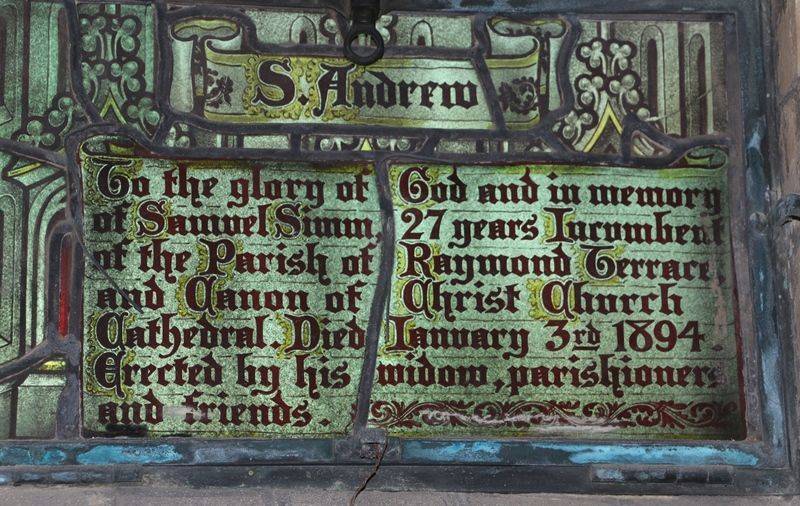 S. Andrew
To the glory of God and in memory
of Samuel Simm 27 years Incumbent
of the Parish of Raymond Terrace,
and Canon of Christ Church
Cathedral. Died January 3rd 1894.
Erected by his widow, parishioners
and friends.